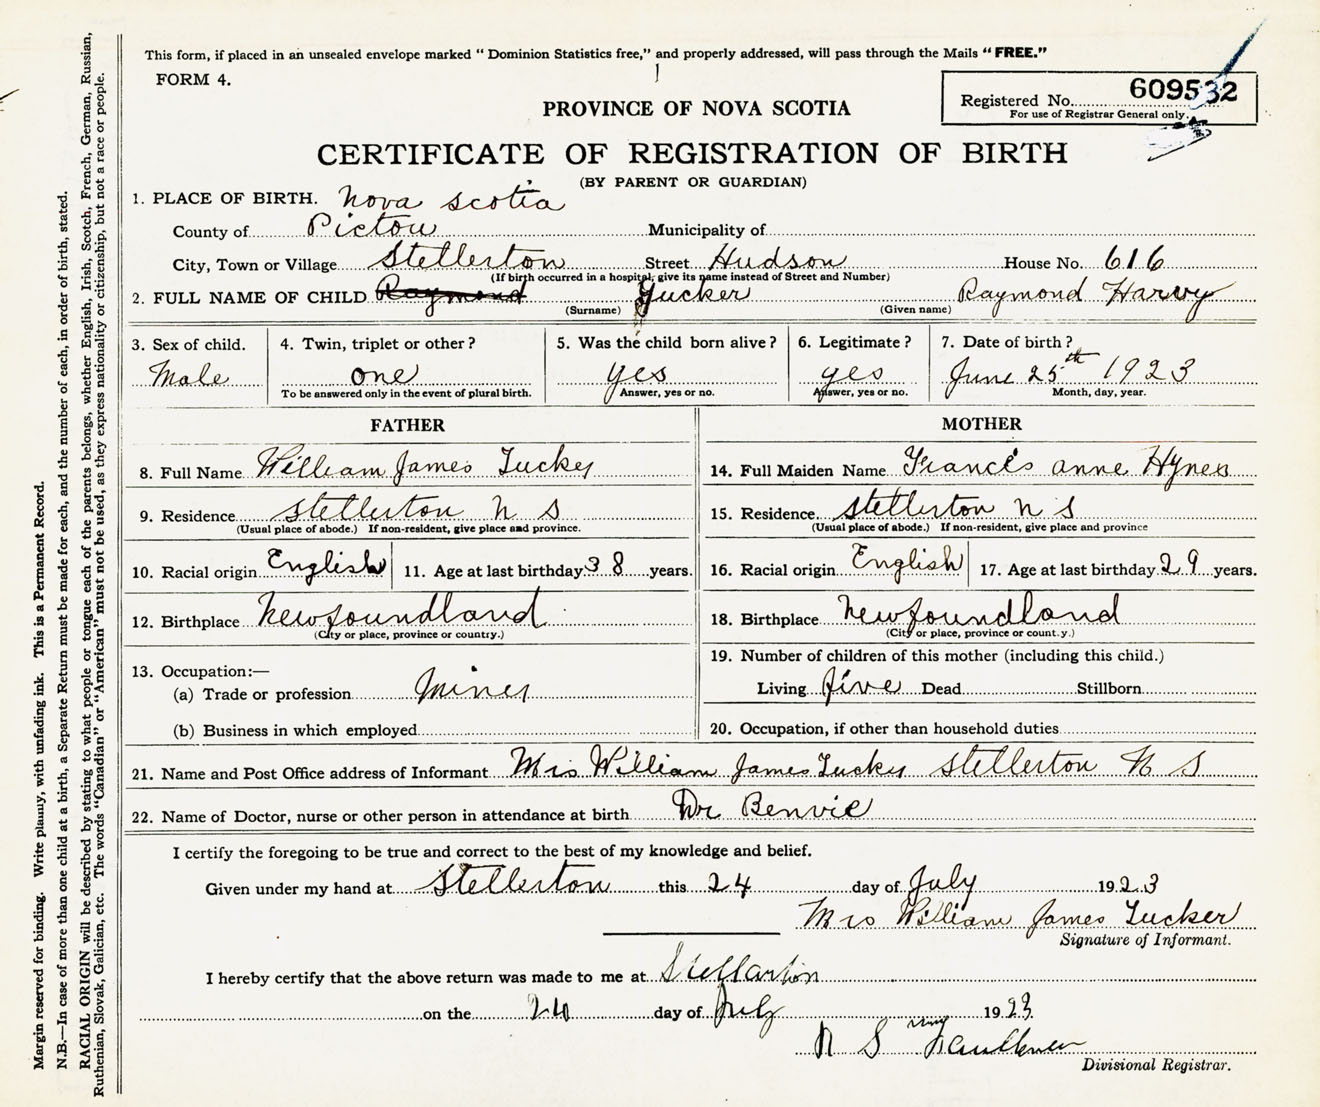 This form, if placed in an unsealed envelope marked " Dominion Statistics free," and properly addressed, will pass through the Mails " FREE."
FORM 4.
Registered No. 609532
For use of Registrar General only.
PROVINCE OF NOVA SCOTIA
CERTIFICATE OF REGISTRATION OF BIRTH
(BY PARENT OR GUARDIAN)
1. PLACE OF BIRTH. Nova Scotia
County of Pictou Municipality of
City, Town or Village Stellerton Street Hudson House No. 616
(If birth occurred in a hospital, give its name instead of Street and Number)
2. FULL NAME OF CHILD Raymond Tucker Raymond Harvy
(Surname) (Given name)
3. Sex of child. 4. Twin, triplet or other? 5. Was the child born alive? 6. Legitimate? 7. Date of birth?
Male one yes yes June 25th 1923
To be answered only in the event of plural birth. Answer, yes or no. Answer, yes or no. Month, day, year.
FATHER MOTHER
8. Full Name William James Tucker 14. Full Maiden Name Francis anne Hynes
9. Residence Stellerton N S 15. Residence Stellerton N S
(Usual place of abode.) If non-resident, give place and province. (Usual place of abode.) If non-resident, give place and province
10. Racial origin English 11. Age at last birthday 38 years. 16. Racial origin English 17. Age at last birthday 29 years.
12. Birthplace Newfoundland 18. Birthplace Newfoundland
(City or place, province or country.) (City or place, province or count.y.)
19. Number of children of this mother (including this child.)
13. Occupation:—
(a) Trade or profession Miner Living five Dead Stillborn
(b) Business in which employed 20. Occupation, if other than household duties
21. Name and Post Office address of Informant Mrs William James Tucker Stellerton N S
22. Name of Doctor, nurse or other person in attendance at birth Dr Benvie
I certify the foregoing to be true and correct to the best of my knowledge and belief.
Given under my hand at Stellerton this 24 day of July 1923
Mrs William James Tucker
Signature of Informant.
I hereby certify that the above return was made to me at Stellarton
on the 24 day of July 1923
Faulkner
Divisional Registrar.
Margin reserved for binding. Write plainly, with unfading ink. This is a Permanent Record.
N.B.—In case of more than one child at a birth, a Separate Return must be made for each, and the number of each, in order of birth, stated.
RACIAL ORIGIN will be described by stating to what people or tongue each of the parents belongs, whether English, Irish, Scotch, French, German, Russian,
Ruthenian, Slovak, Galician, etc. The words "Canadian" or "American" must not be used, as they express nationality or citizenship, but not a race or people.